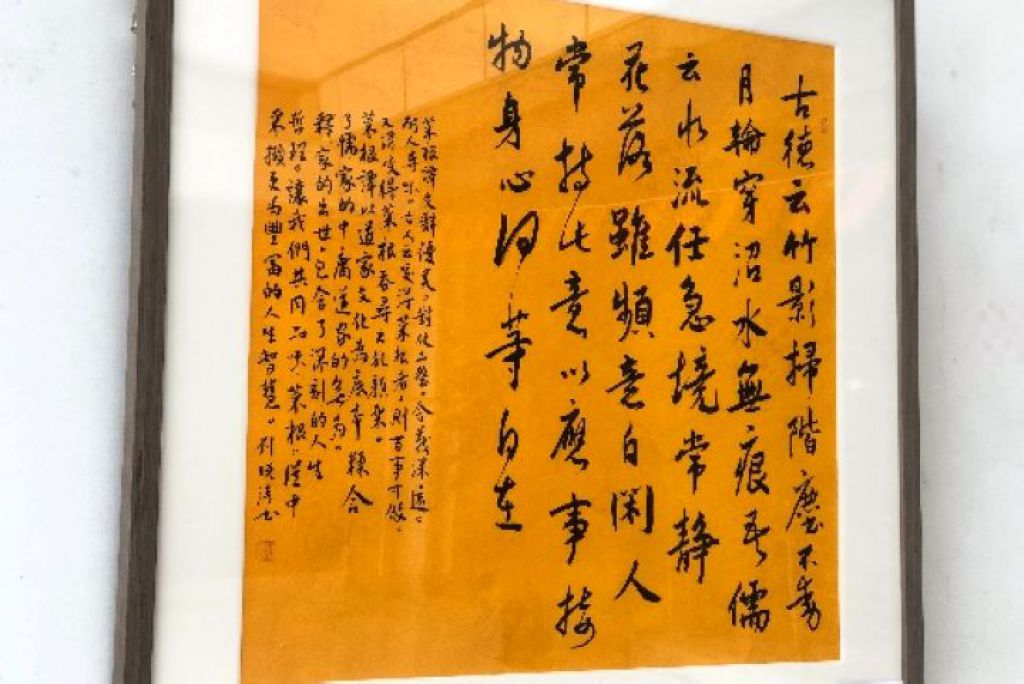 古德云竹影掃階塵不動
月輪穿沼水無痕吾儒
云水流任急境常靜
花落雖頻意自閑人
常持此意以應事接
物身心何等自在
菜根譚文辭優美。對仗工整。含義深遠。
耐人尋味。古人云咬得菜根者。則百事可做。
又謂咬得菜根香尋出孔顏樂。
菜根譚以道家文化為底本糅合
了儒家的中庸道家的無為。
釋家的出世。包含了深刻的人生
哲理。讓我們共同品味菜根譚中
更為豐富的人生智慧。劉